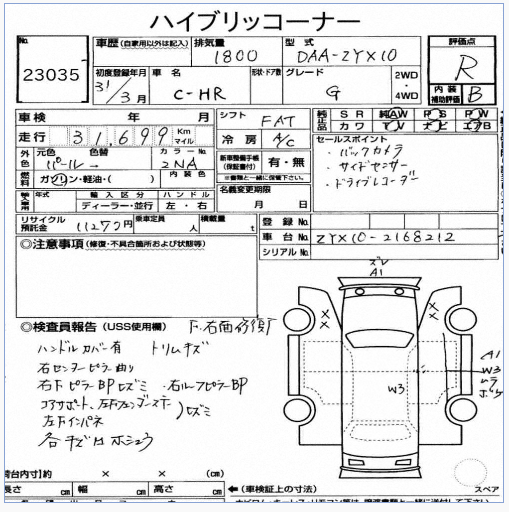 ハイブリッコーナー
No. 23035
車歴 (自家用以外は記入) 排気量 1800 型式 DAA-ZYX10
評価点 R
初度登録年月 31/3月 車名 C-HR 形状・ドア数 グレード G 2WD・4WD
内装補助評価 B
車検 年 月 シフト FAT
走行 31,699 Km マイル 冷房 A/C
純正品 SR 純AW PS PW
カワ TV ナビ エアB
外色 元色 パール 色替 → カラーNo. 2NA
燃料 ガソリン・軽油・( ) 内装色
新車整備手帳(保証書付) 有・無
※書類と一緒に保管下さい。
セールスポイント
・バックカメラ
・サイドセンサー
・ドライブレコーダー
輸入車 年式 輸入区分 ディーラー・並行 ハンドル 左・右
名義変更期限 月 日
リサイクル預託金 11270円 乗車定員 人 積載量 t
登録No.
車台No. ZYX10-2168212
シリアルNo.
◎注意事項 (修復・不具合箇所および状態等)
ズレ
A1
◎検査員報告 (USS使用欄) F.右面修復有
ハンドルカバー有 トリムキズ
右センターピラー曲り
右FピラーBPヒズミ ・右ルーフピラーBP
コアサポート、左右フェンダーステー ヒズミ
左右インパネ
各キズ 口 ホシュウ
W3
A1
W3
ムラ
ボケ
荷台内寸 約 × × (cm)
長さ cm 幅 cm 高さ cm ←(車検証上の寸法)
スペア